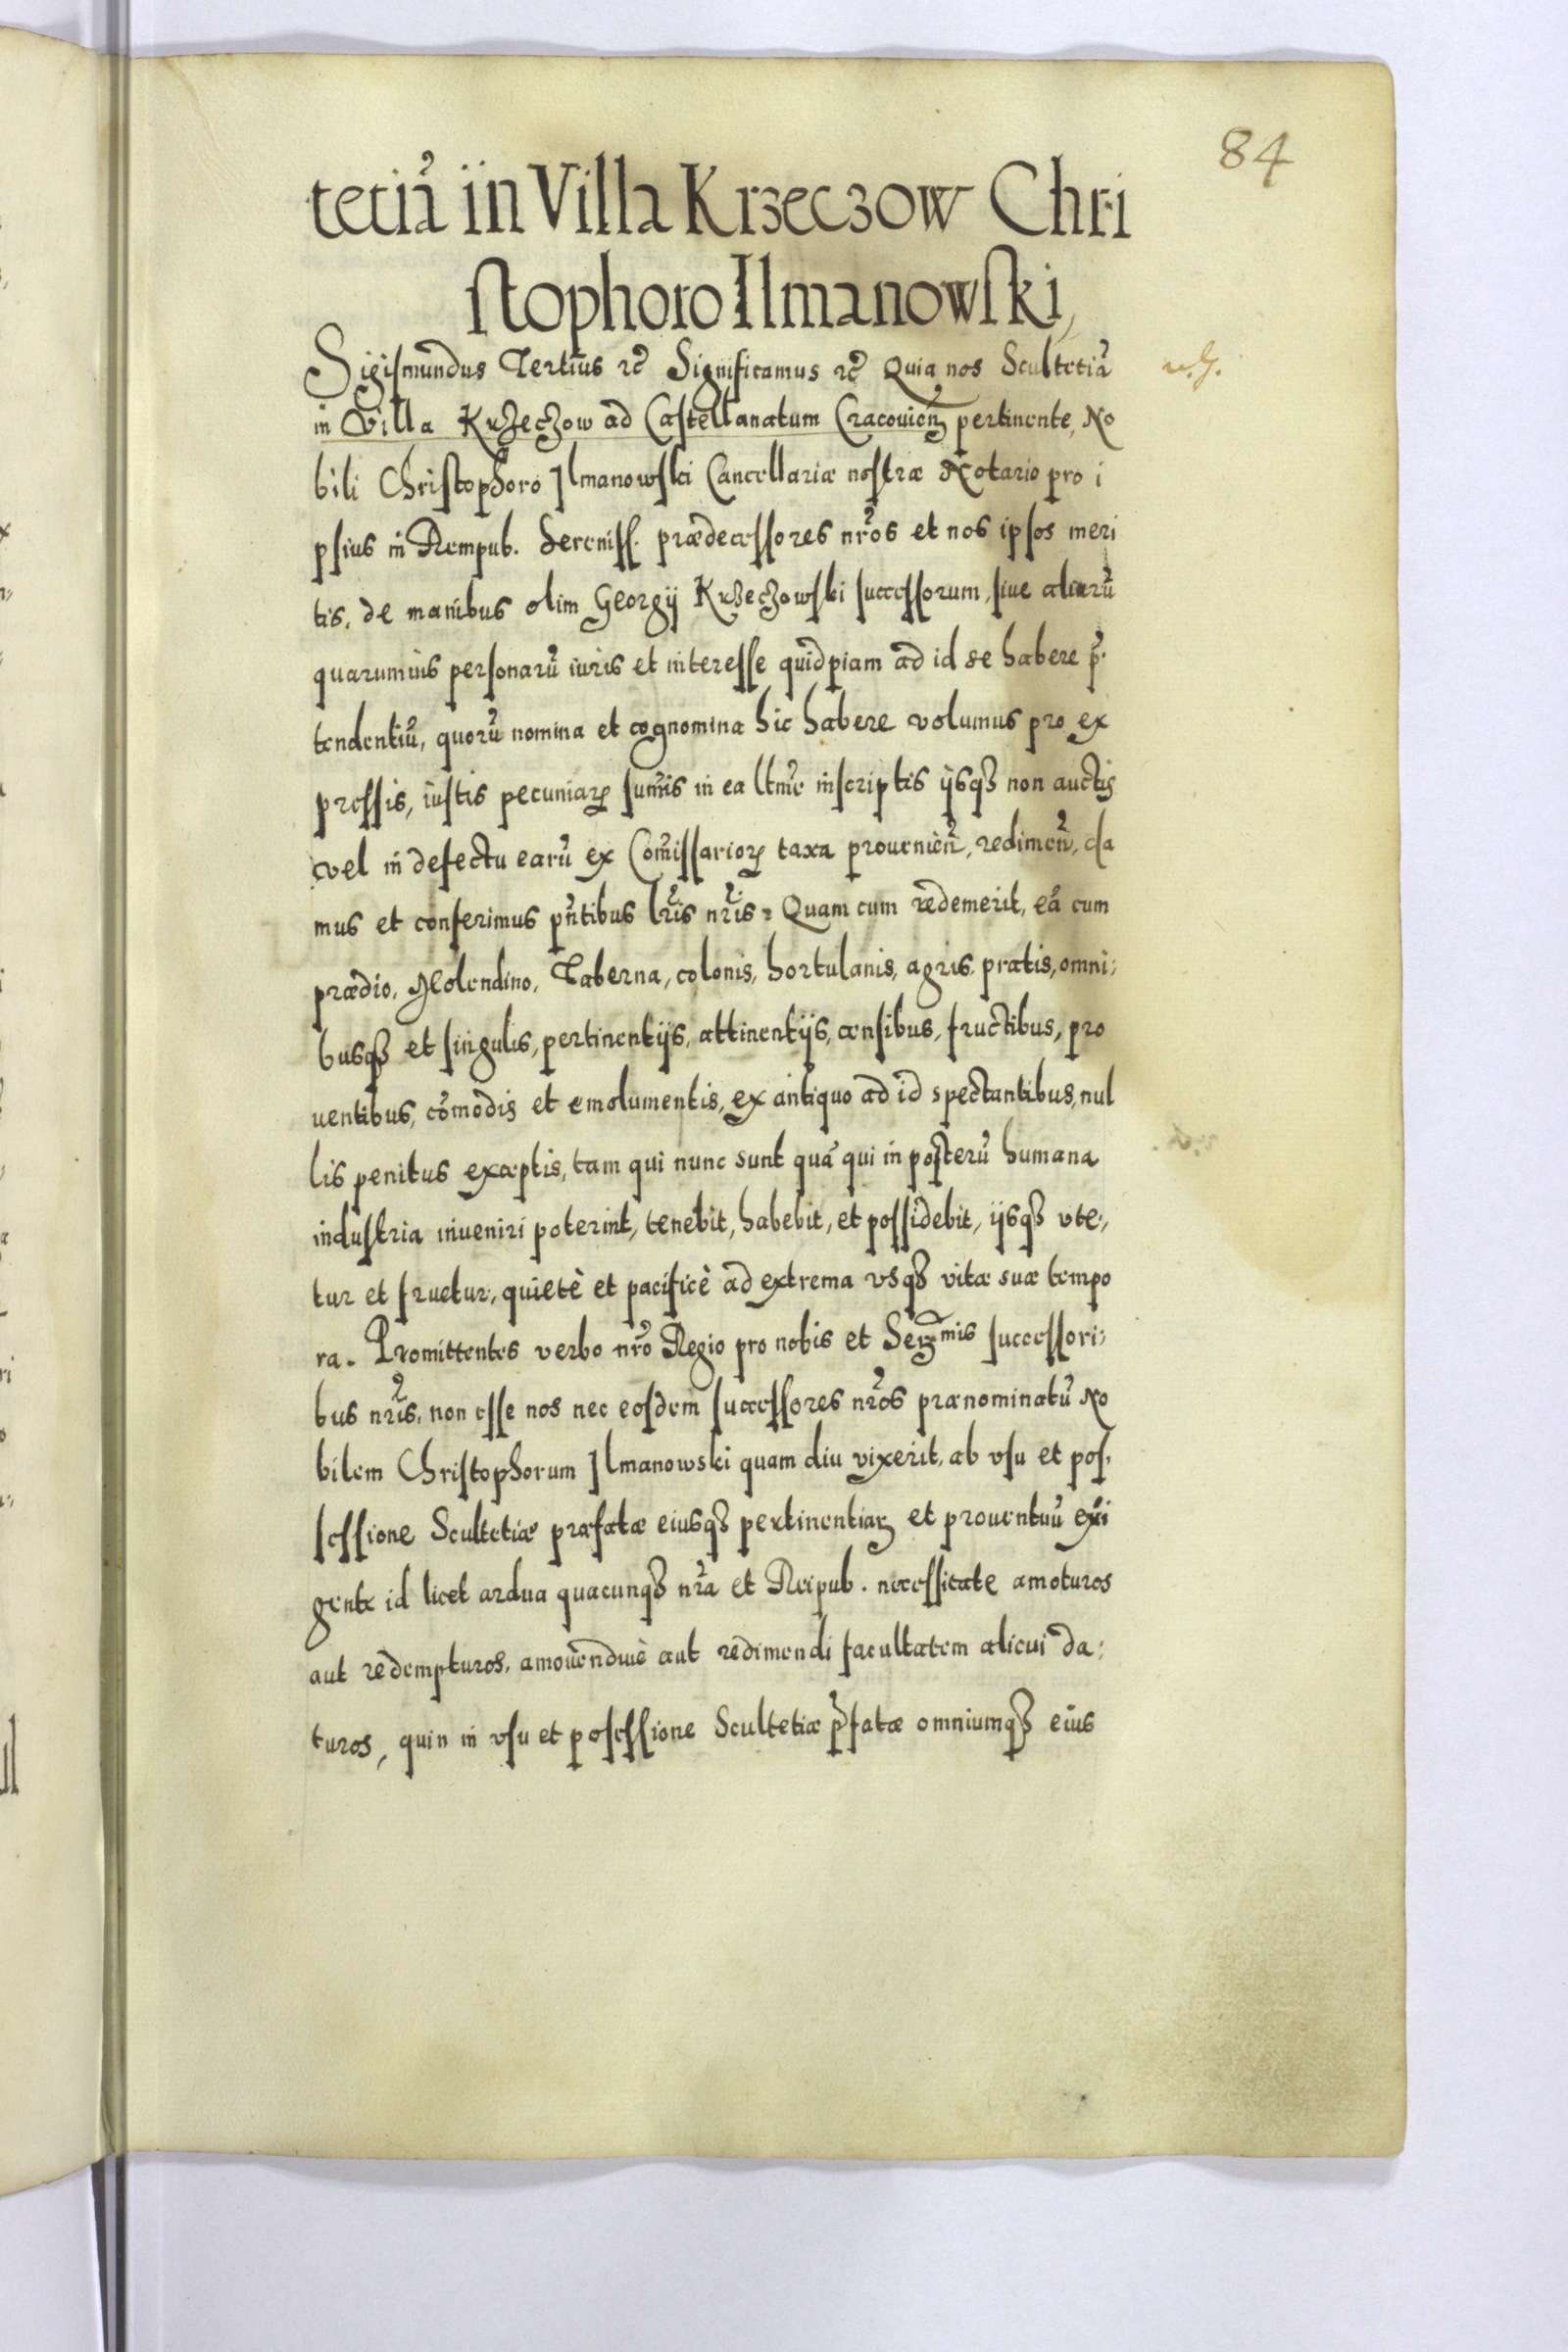 84
tetiã in Villa Krzeczow Chri
stophoro Ilmanowski,
Sigismundus Tertius &c Significamus &c Quia nos Scultetiã
in Villa Krzeczow ad Castellanatum Cracovien̄ pertinente, No
bili Christophoro Ilmanowski Cancellariæ nostræ Notario pro i
psius in Rempub. Sereniss. prædecessores nr̃os et nos ipsos meri
tis, de manibus olim Georgij Krzeczowski successorum, siue aliarũ
quarumuis personarũ iuris et interesse quidpiam ad id se habere p̃
tendentiũ, quorũ nomina et cognomina hic habere volumus pro ex
pressis, iustis pecuniarꝝ sum̃is in ea ltm̃e inscriptis ijsqꝫ non auctis
vel in defectu earũ ex Com̃issariorꝝ taxa prouenien̄, redimen̄, da
mus et conferimus pñtibus lr̃is nr̃is. Quam cum redemerit, eã cum
prædio, Molendino, Taberna, colonis, hortulanis, agris, pratis, omni:
busqꝫ et singulis, pertinentijs, attinentijs, censibus, fructibus, pro
uentibus, cõmodis et emolumentis, ex antiquo ad id spectantibus, nul
lis penitus exceptis, tam qui nunc sunt quã qui in posterũ humana
industria inueniri poterint, tenebit, habebit, et possidebit, ijsqꝫ vte:,
tur et fruetur, quietè et pacificè ad extrema vsqꝫ vitæ suæ tempo
ra. Promittentes verbo nr̃o Regio pro nobis et Serꝫmis successori:
bus nr̃is, non esse nos nec eosdem successores nr̃os prænominatũ No
bilem Christophorum Ilmanowski quam diu vixerit, ab vsu et pos,
sessione Scultetiæ præfatæ eiusqꝫ pertinentiarꝝ et prouentuũ exi
gente id licet ardua quacunqꝫ nr̃a et Reipub. necessitate amoturos
aut redempturos, amouendiuè aut redimendi facultatem alicui da:
turos, quin in vsu et posessione Scultetiæ p̃fatæ omniumqꝫ eius